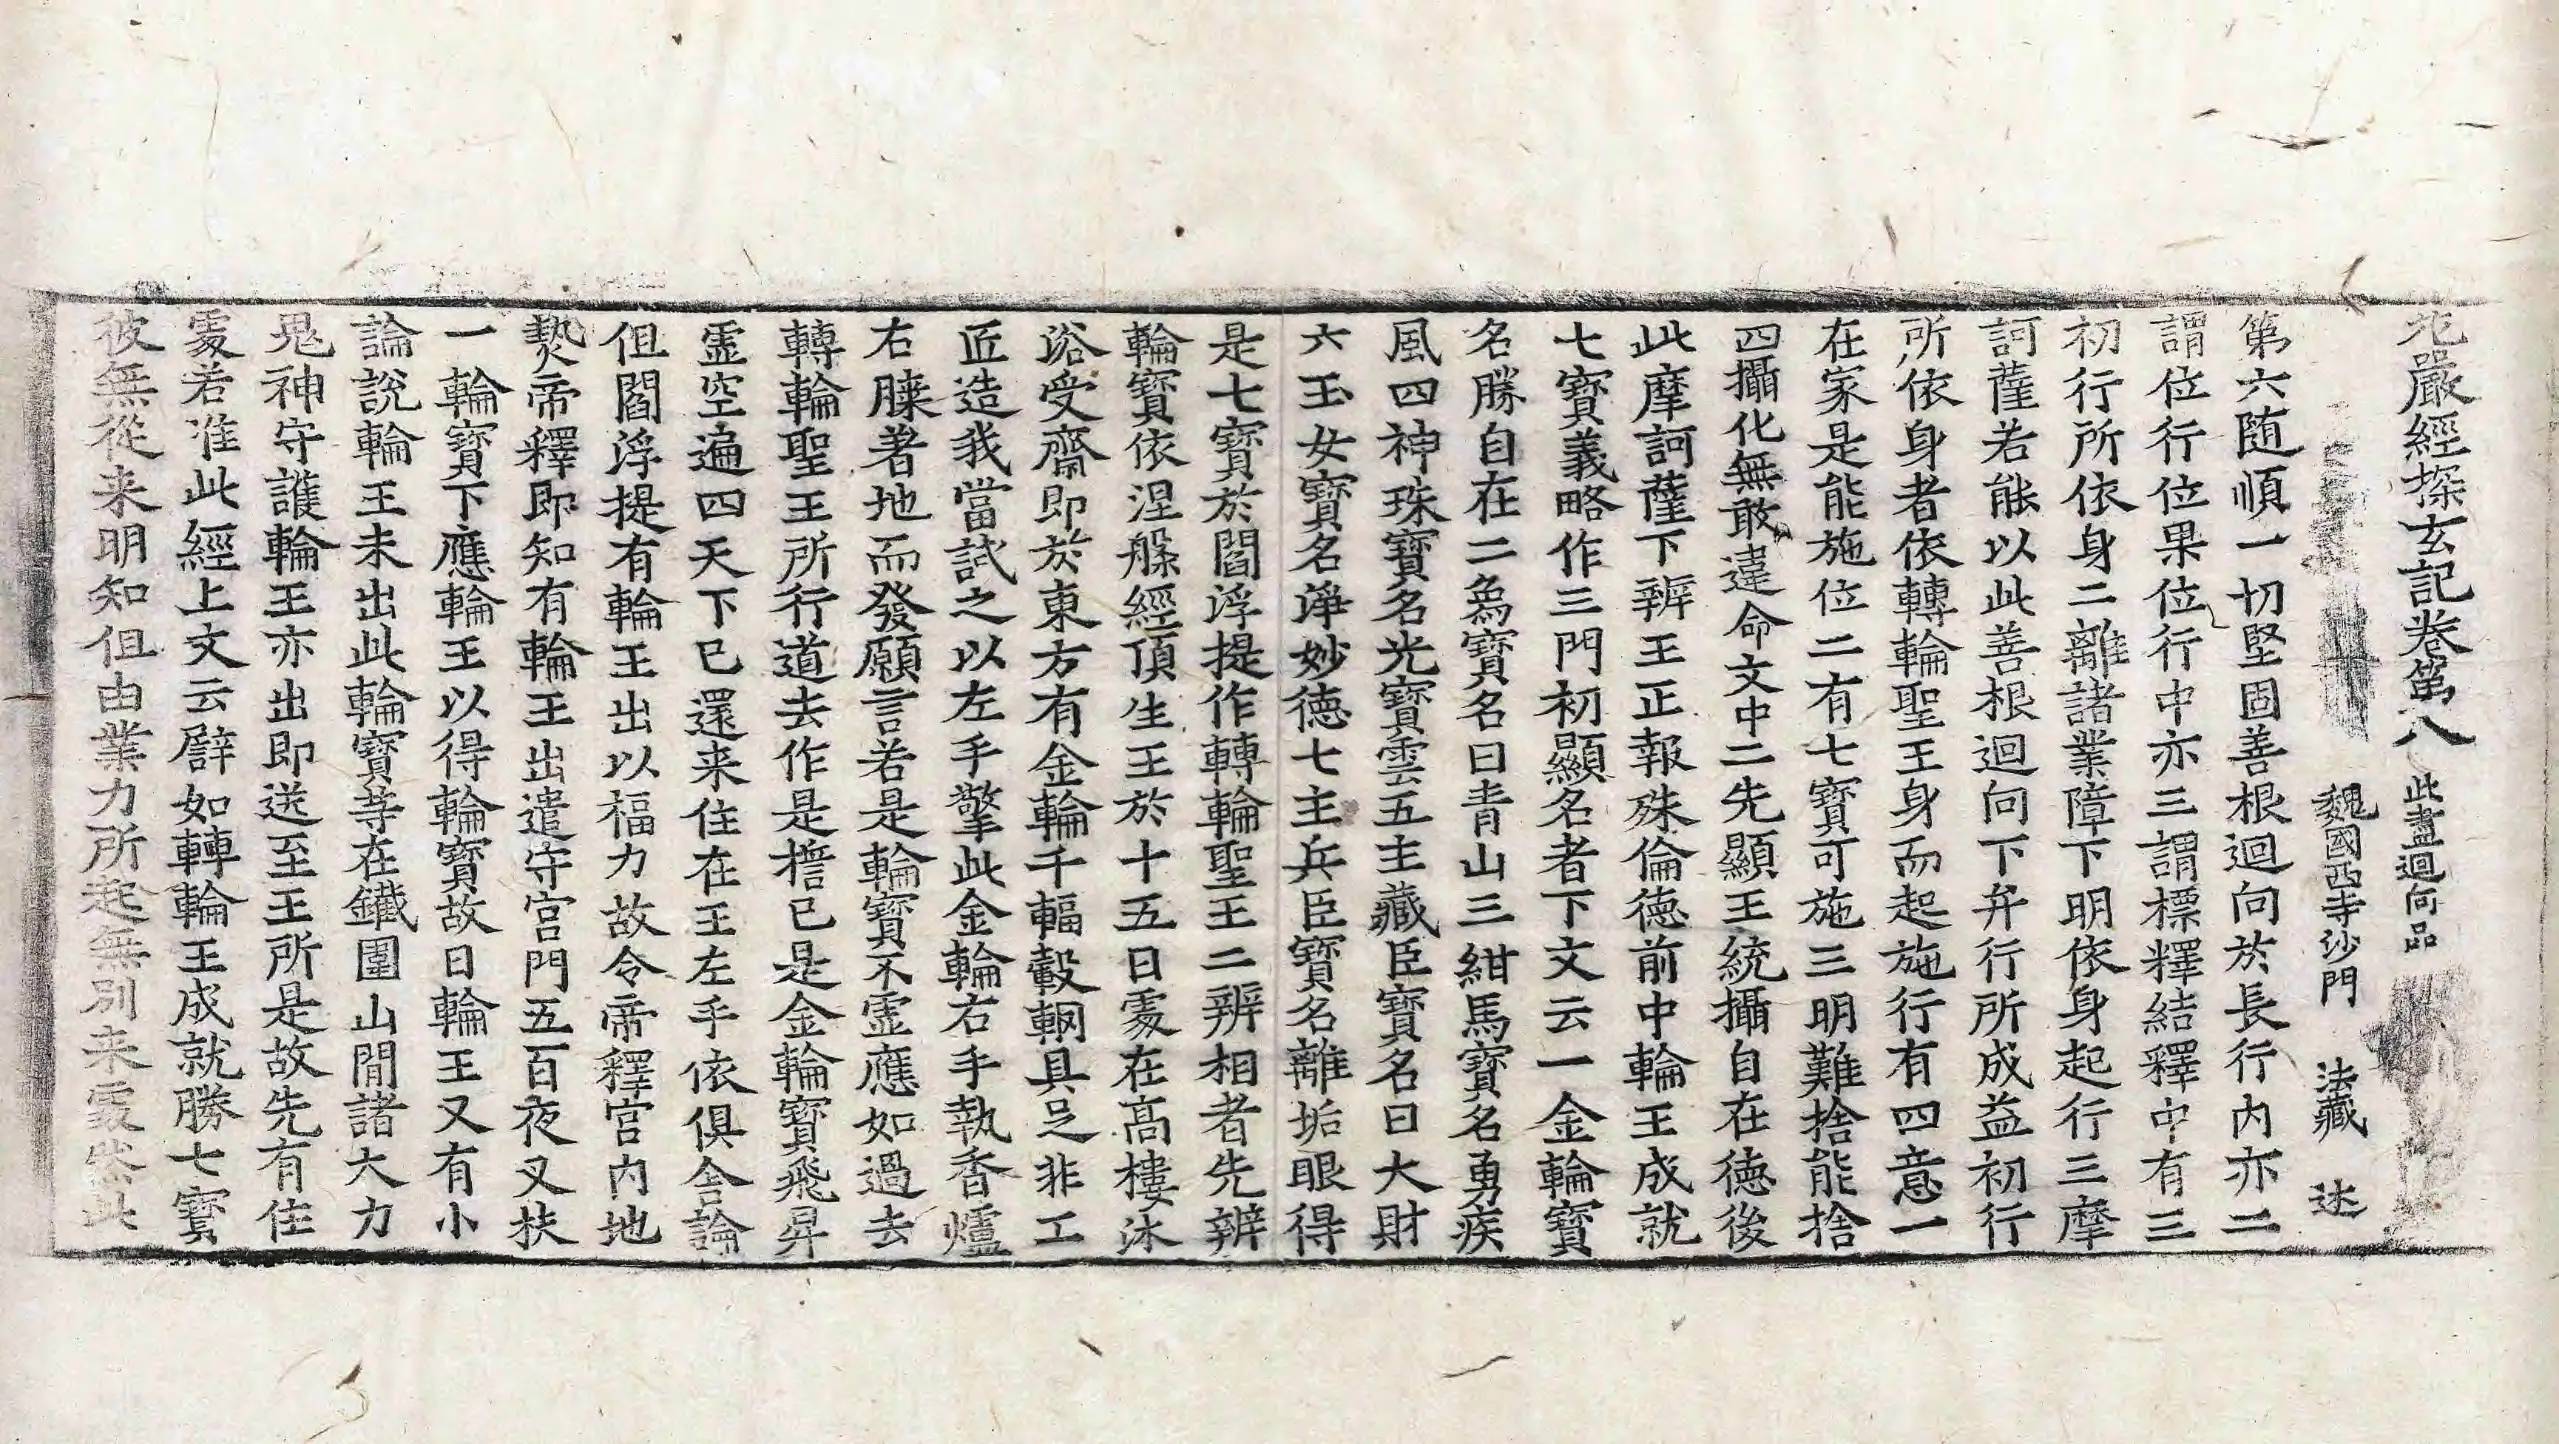 花嚴經探玄記卷第八 此盡迴向品
魏國西寺沙門 法藏 述
第六随順一切堅固善根迴向於長行内亦二
謂位行位果位行中亦三謂標釋結釋中有三
初行所依身二離諸業障下明依身起行三摩
訶薩若能以此善根迴向下弁行所成益初行
所依身者依轉輪聖王身而起施行有四意一
在家是能施位二有七寶可施三明難捨能捨
四攝化無敢違命文中二先顯王統攝自在德後
此摩訶薩下辨王正報殊倫德前中輪王成就
七寶義略作三門初顯名者下文云一金輪寶
名勝自在二為寶名曰青山三紺馬寶名勇疾
風四神珠寶名光寶雲五主藏臣寶名曰大財
六玉女寶名淨妙德七主兵臣寶名離垢眼得
是七寶於閻浮提作轉輪聖王二辨相者先辨
輪寶依涅槃經頂生王於十五日䖏在髙樓沐
浴受齋即於東方有金輪千輻轂輞具足非工
匠造我當試之以左手擎此金輪右手執香爐
右膝著地而發願言若是輪寶不虛應如過去
轉輪聖王所行道去作是擔已是金輪寶飛昇
虛空遍四天下已還来住在王左手依俱舍論
但閻浮提有輪王出以福力故令帝釋宮内地
𤍠帝釋即知有輪王出遣守宮門五百夜叉扶
一輪寶下應輪王以得輪寶故曰輪王又有小
論說輪王未出此輪寶等在鐵圍山間諸大力
鬼神守護輪王亦出即送至王所是故先有住
䖏若准此經上文云譬如轉輪王成就勝七寶
彼無從来明知但由業力所起無別来䖏然此